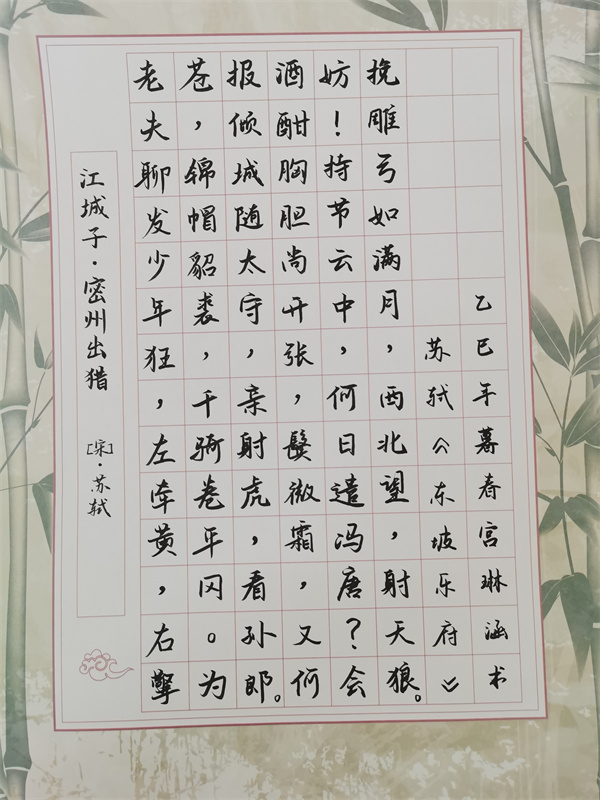 江城子·密州出猎 [宋]·苏轼
老夫聊发少年狂，左牵黄，右擎
苍，锦帽貂裘，千骑卷平冈。为
报倾城随太守，亲射虎，看孙郎。
酒酣胸胆尚开张，鬓微霜，又何
妨！持节云中，何日遣冯唐？会
挽雕弓如满月，西北望，射天狼。
苏轼《东坡乐府》
乙巳年暮春宫琳涵书